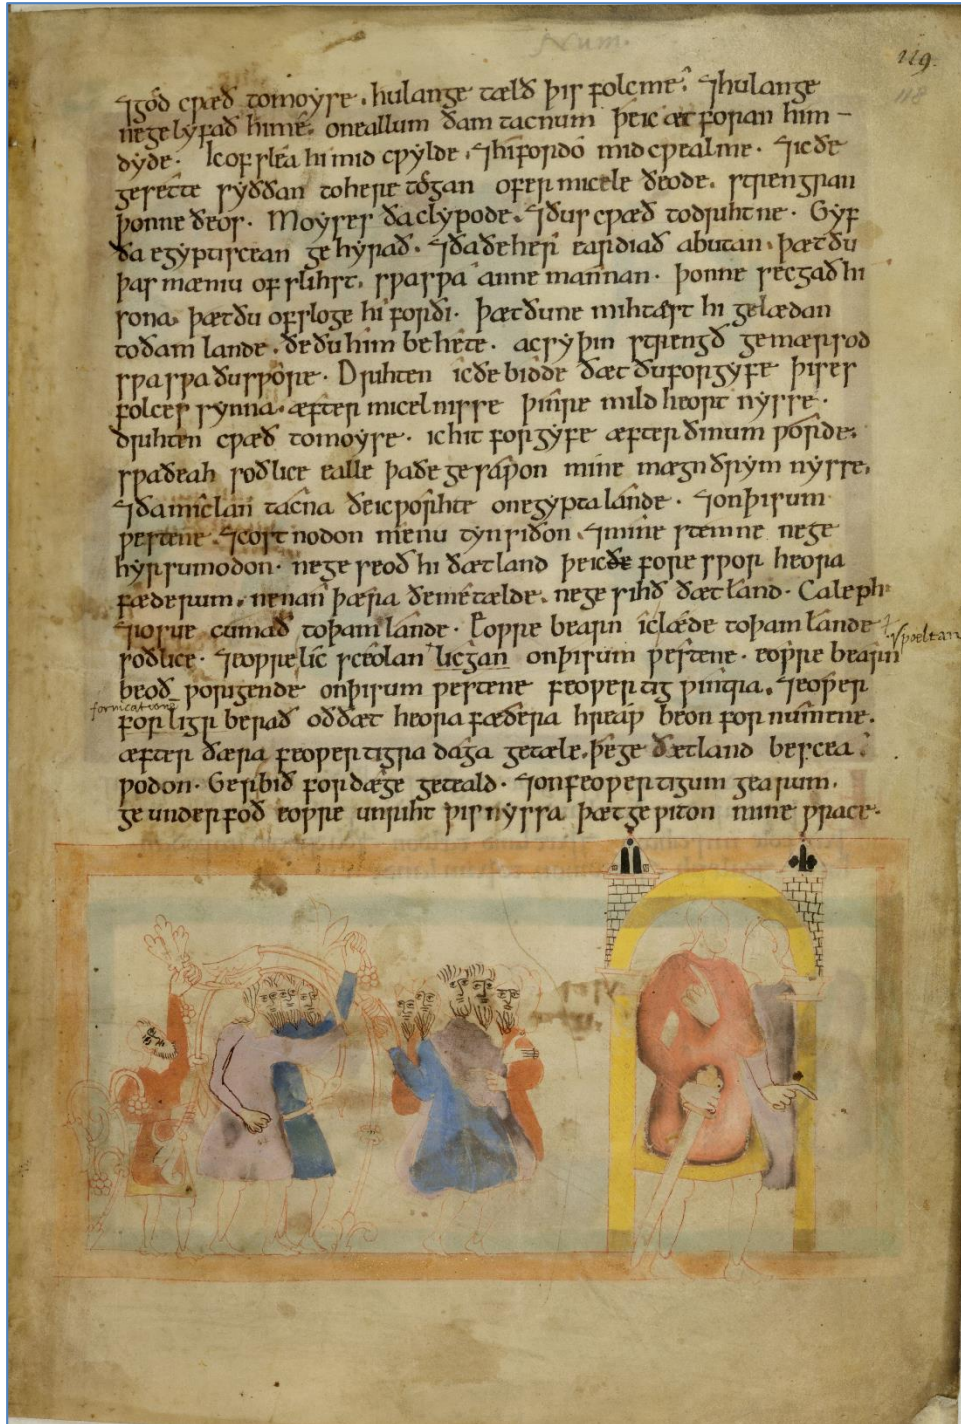 Num.
119.
118
⁊gōd cƿæð tomoyse. hulange tælð þis folc me. ⁊hulange
ne gelyfað hi me. oneallum ðam tacnum þe ic æt foran him
dyde. Ic ofslea hi mid cƿylde. ⁊hi fordo mid cƿealme. ⁊icðe
gesette syððan tohere togan ofer micele ðeode. strengran
þonne ðeos. Moyses ða clypode. ⁊ðus cƿæð todrihtne. Gyf
ða egyptiscean gehyrað. ⁊ðaðeheri eardiað abutan. þæt ðu
þas mæniu ofslihst. sƿasƿa anne mannan. þonne secgað hi
sona. þæt ðu ofsloge hi forði. þæt ðu ne mihtest hi gelædan
toðam lande. ðe ðu him behete. ac sy þin strengð gemærsod
sƿasƿa ðu sƿore. Drihten ic ðe bidde ðæt ðu forgyfe þises
folces synna. æfter micelnisse þinre mildheortnysse.
drihten cƿæð tomoyse. ic hit forgyfe æfter ðinum ƿorde.
sƿaðeah soðlice ealle þaðe gesaƿon mine mægnðrymnysse.
⁊ða miclan tacna ðe ic ƿorhte onegypta lande. ⁊onþisum
ƿestene. ⁊costnodon me nu tyn siðon. ⁊mine stemne ne ge
hyrsumodon. ne geseoð hi ðæt land þe ic ðe foresƿor heora
fæderum. ne nan þæra ðe me tælde. ne gesihð ðæt land. Caleph
⁊iosue cumað toþam lande. Eoƿre bearn ic læde toþam lande
soðlice. ⁊eoƿre lic sceolan licgan onþisum ƿestene. eoƿre bearn
sƿoeltan
beoð ƿorigende onþisum ƿestene feoƿertig ƿintra. ⁊eoƿer
fornicationē
forligr berað oððæt heora fædera hreaƿ beon fornumene.
æfter ðæra feoƿertigra daga getæle. þe ge ðæt land bescea
ƿodon. Ger bið for dæge geteald. ⁊on feoƿertigum gearum.
ge underfoð eoƿre unriht ƿisnyssa þæt ge ƿiton mine ƿrace.